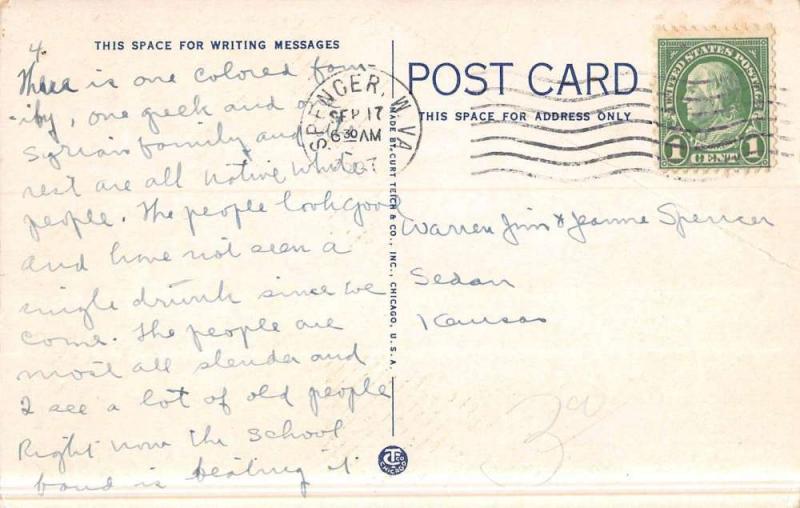 4.
THIS SPACE FOR WRITING MESSAGES
There is one colored fam-
-ily, one greek and one
Syrian family and
rest are all native white
people. The people look good
and have not seen a
single drunk since we
come. The people are
most all slender and
I see a lot of old people
Right now the school
band is beating it
SPENCER, W.VA.
SEP 17
6 30 AM
MADE BY CURT TEICH & CO., INC., CHICAGO, U.S.A.
CT & CO
CHICAGO
POST CARD
THIS SPACE FOR ADDRESS ONLY
UNITED STATES POSTAGE
1 CENT 1
Warren Jim & Jeanne Spencer
Sedan
Kansas